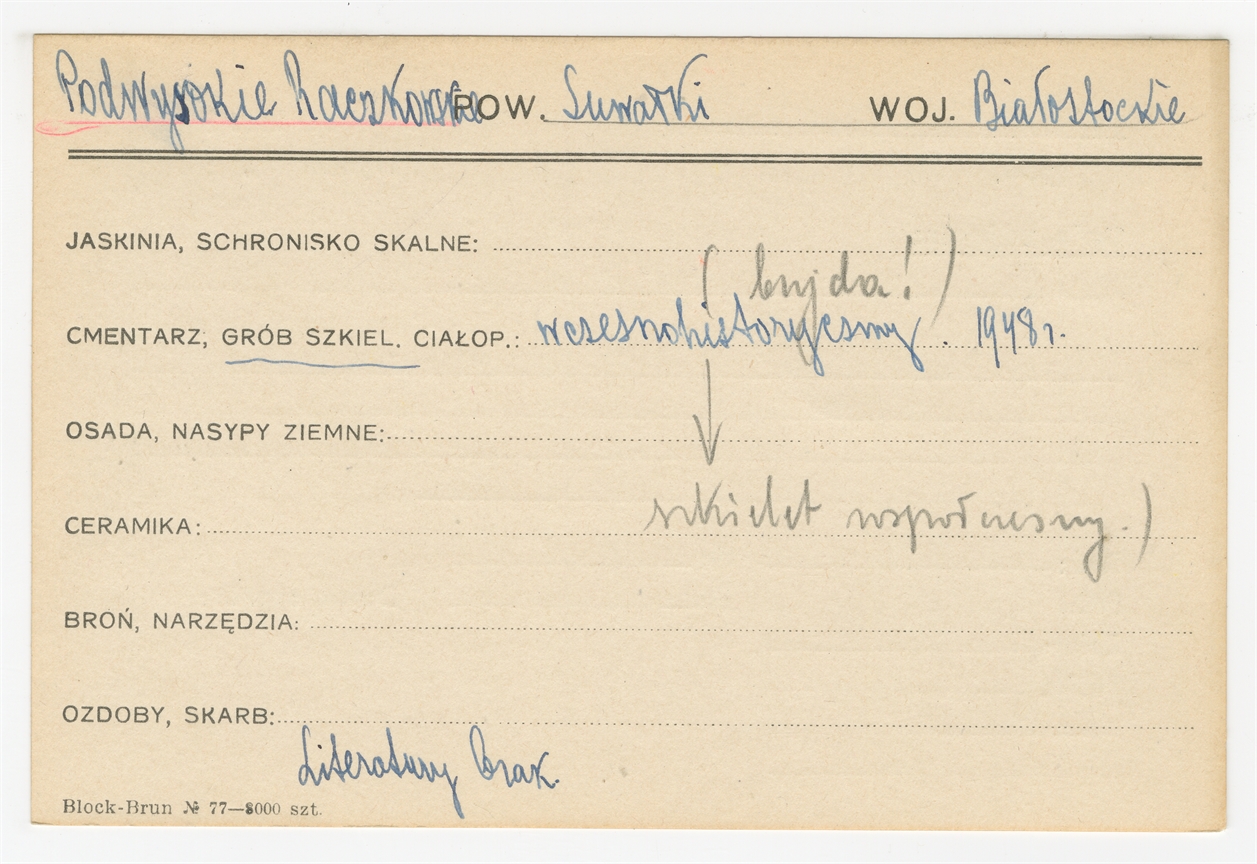 Podwysokie Raczkowskie POW. Suwałki WOJ. Białostockie
JASKINIA, SCHRONISKO SKALNE:
( bujda! )
CMENTARZ, GRÓB SZKIEL. CIAŁOP.: wczesnohistoryczny. 1948 r.
OSADA, NASYPY ZIEMNE:
CERAMIKA: szkielet współczesny.)
BROŃ, NARZĘDZIA:
OZDOBY, SKARB:
Literatury brak.
Block-Brun № 77—8000 szt.